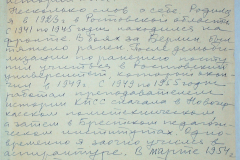 Несколько слов о себе. Родился
я в 1923 г. в Ростовской области.
С 1941 по 1945 годы находился на
фронте. В боях за Берлин был
тяжело ранен. После демоби-
лизации по ранению посту-
пил учиться в Ростовский
университет, который окончил
в 1949 г. С 1949 по 1965 годы
работал преподавателем
истории КПСС сначала в Новочер-
касском политехническом,
а затем в Брестском педагоги-
ческом институтах. Одно-
временно я заочно учился в
аспирантуре. В марте 1954